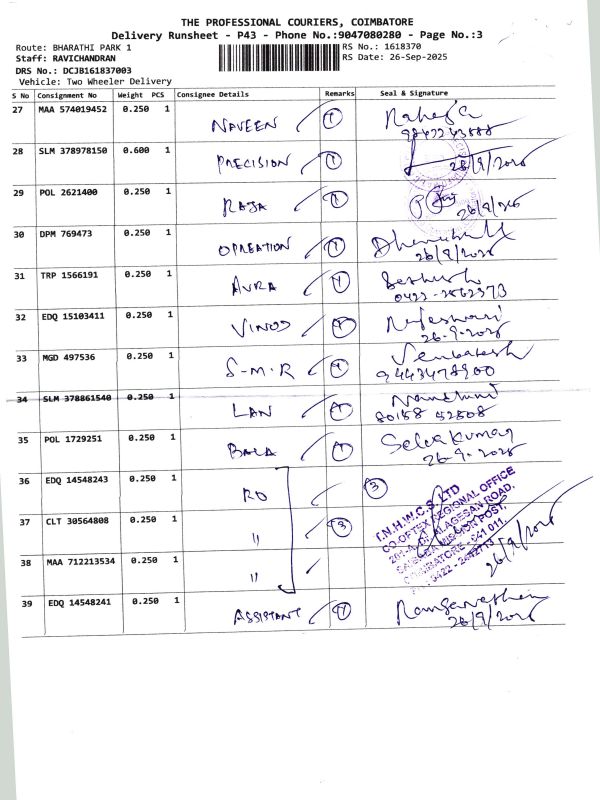 THE PROFESSIONAL COURIERS, COIMBATORE
Delivery Runsheet - P43 - Phone No.:9047080280 - Page No.:3
Route: BHARATHI PARK 1
RS No.: 1618370
Staff: RAVICHANDRAN
RS Date: 26-Sep-2025
DRS No.: DCJB161837003
Vehicle: Two Wheeler Delivery
S No Consignment No Weight PCS Consignee Details Remarks Seal & Signature
27 MAA 574019452 0.250 1 NAVEEN 1
9842243888
28 SLM 378978150 0.600 1 PRECISION 1 26/9/2025
29 POL 2621400 0.250 1 RAJA 1 26/9/25
30 DPM 769473 0.250 1 OPREATION 1
26/9/2025
31 TRP 1566191 0.250 1 AVRA 1
0422-2562373
32 EDQ 15103411 0.250 1 VINOD 1 Rajeswari
26-9-2025
33 MGD 497536 0.250 1 S-M-R 1 Venkatesh
9443478900
34 SLM 378861540 0.250 1 LAN 1 Nandhini
80158 52808
35 POL 1729251 0.250 1 BALA 1 Selvakumar
26-9-2025
36 EDQ 14548243 0.250 1 RO 3
T.N.H.W.C.S. LTD
CO-OPTEX REGIONAL OFFICE
37 CLT 30564808 0.250 1 " 3
COIMBATORE - 641 011.
38 MAA 712213534 0.250 1 "
26/9/2025
39 EDQ 14548241 0.250 1 ASSISTANT 1
26/9/2025